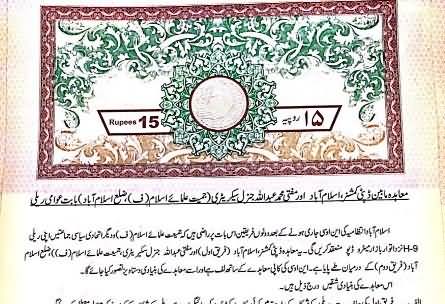 Rupees 15
۱۵ روپیہ
معاہدہ مابین ڈپٹی کمشنر، اسلام آباد اور مفتی محمد عبداللہ جنرل سیکریٹری (جمیعت علمائے اسلام (ف) ضلع اسلام آباد) بابت عوامی ریلی
اسلام آباد انتظامیہ کی این او سی جاری ہونے کے بعد دونوں فریقین اس بات پر راضی ہیں کہ جمیعت علمائے اسلام (ف) و دیگر اتحادی سیاسی جماعتیں اپنی ریلی
H-9 نزد اتوار بازار میٹرو ڈپو منعقد کریں گی۔ یہ معاہدہ ڈپٹی کمشنر، اسلام آباد (فریق اول) اور مفتی عبداللہ جنرل سیکریٹری، جمیعت علمائے اسلام (ف) (ضلع اسلام
آباد) (فریق دوم) کے درمیان طے پایا ہے۔ این او سی کی کاپی معاہدے کے ساتھ لف ہے اور اسے معاہدے کی بنیادی دستاویز تصور کیا جائے گا۔
اس معاہدے کی بنیادی شقیں درج ذیل ہیں۔